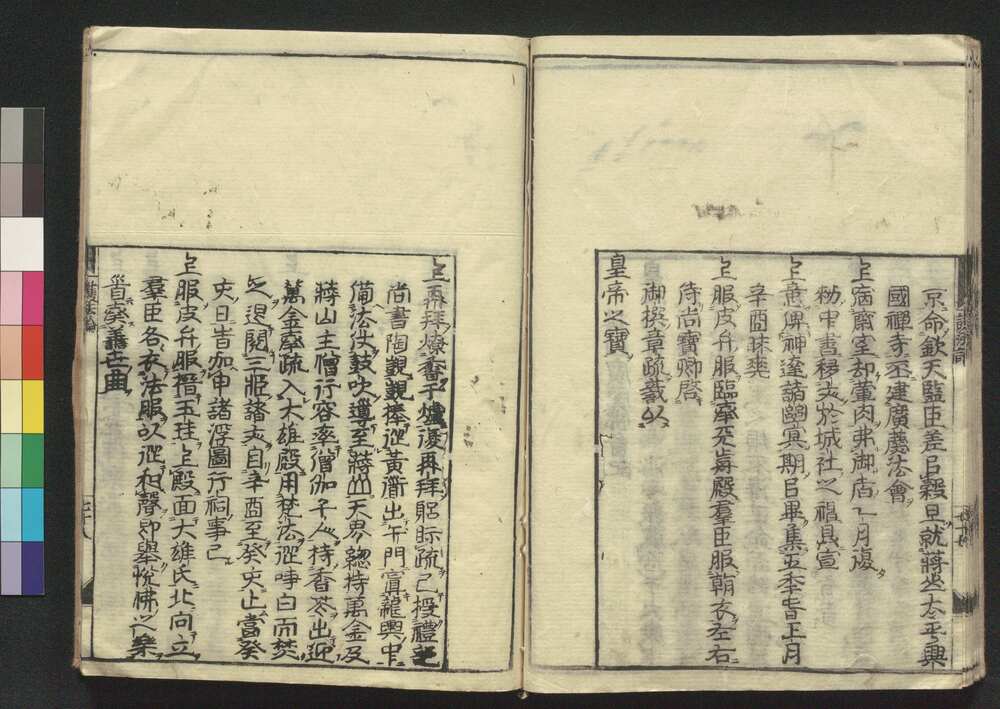 京命欽天監臣差以穀旦就蔣山太平興
國禪寺丕建廣薦法會
上宿齋室却葷肉弗御者一月復
勅中書移文於城社之神具宣
上意俾神達諸幽冥期以畢集五年春正月
辛酉昧爽
上服皮弁服臨奉天前殿羣臣服朝衣左右
侍尚寶卿啓
御撰章疏識以
皇帝之寶
上再拜燎香于爐復再拜躬眎疏已授禮部
尚書陶凱凱捧從黃道出午門寘龍輿中
備法仗鼓吹導至蔣山天界總持萬金及
蔣山主僧行容率僧伽千人持香華出迎
萬金奉疏入大雄殿用梵法從事白而焚
之退閱三藏諸文自辛酉至癸亥止當癸
亥日時加申諸浮圖行祠事已
上服皮弁服搢玉珪上殿面大雄氏北向立
羣臣各衣法服以從和聲郎舉悅佛之樂
首奏善世曲
護法論